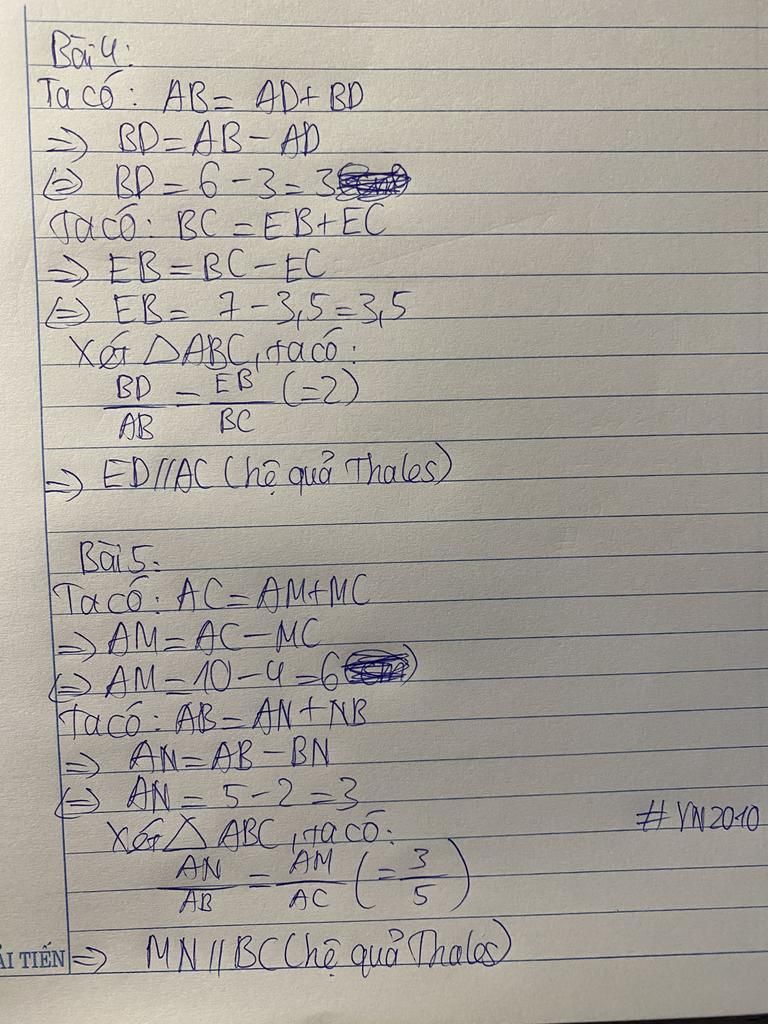 Bài 4:
Ta có: AB = AD + BD
=> BD = AB - AD
<=> BD = 6 - 3 = 3
Ta có: BC = EB + EC
=> EB = BC - EC
<=> EB = 7 - 3,5 = 3,5
Xét △ABC, ta có:
BD/AB = EB/BC (=2)
=> ED//AC (hệ quả Thales)
Bài 5:
Ta có: AC = AM + MC
=> AM = AC - MC
<=> AM = 10 - 4 = 6
Ta có: AB = AN + NB
=> AN = AB - BN
<=> AN = 5 - 2 = 3
Xét △ABC, ta có:
# VN2010
AN/AB = AM/AC (= 3/5)
ẢI TIẾN => MN // BC (hệ quả Thales)